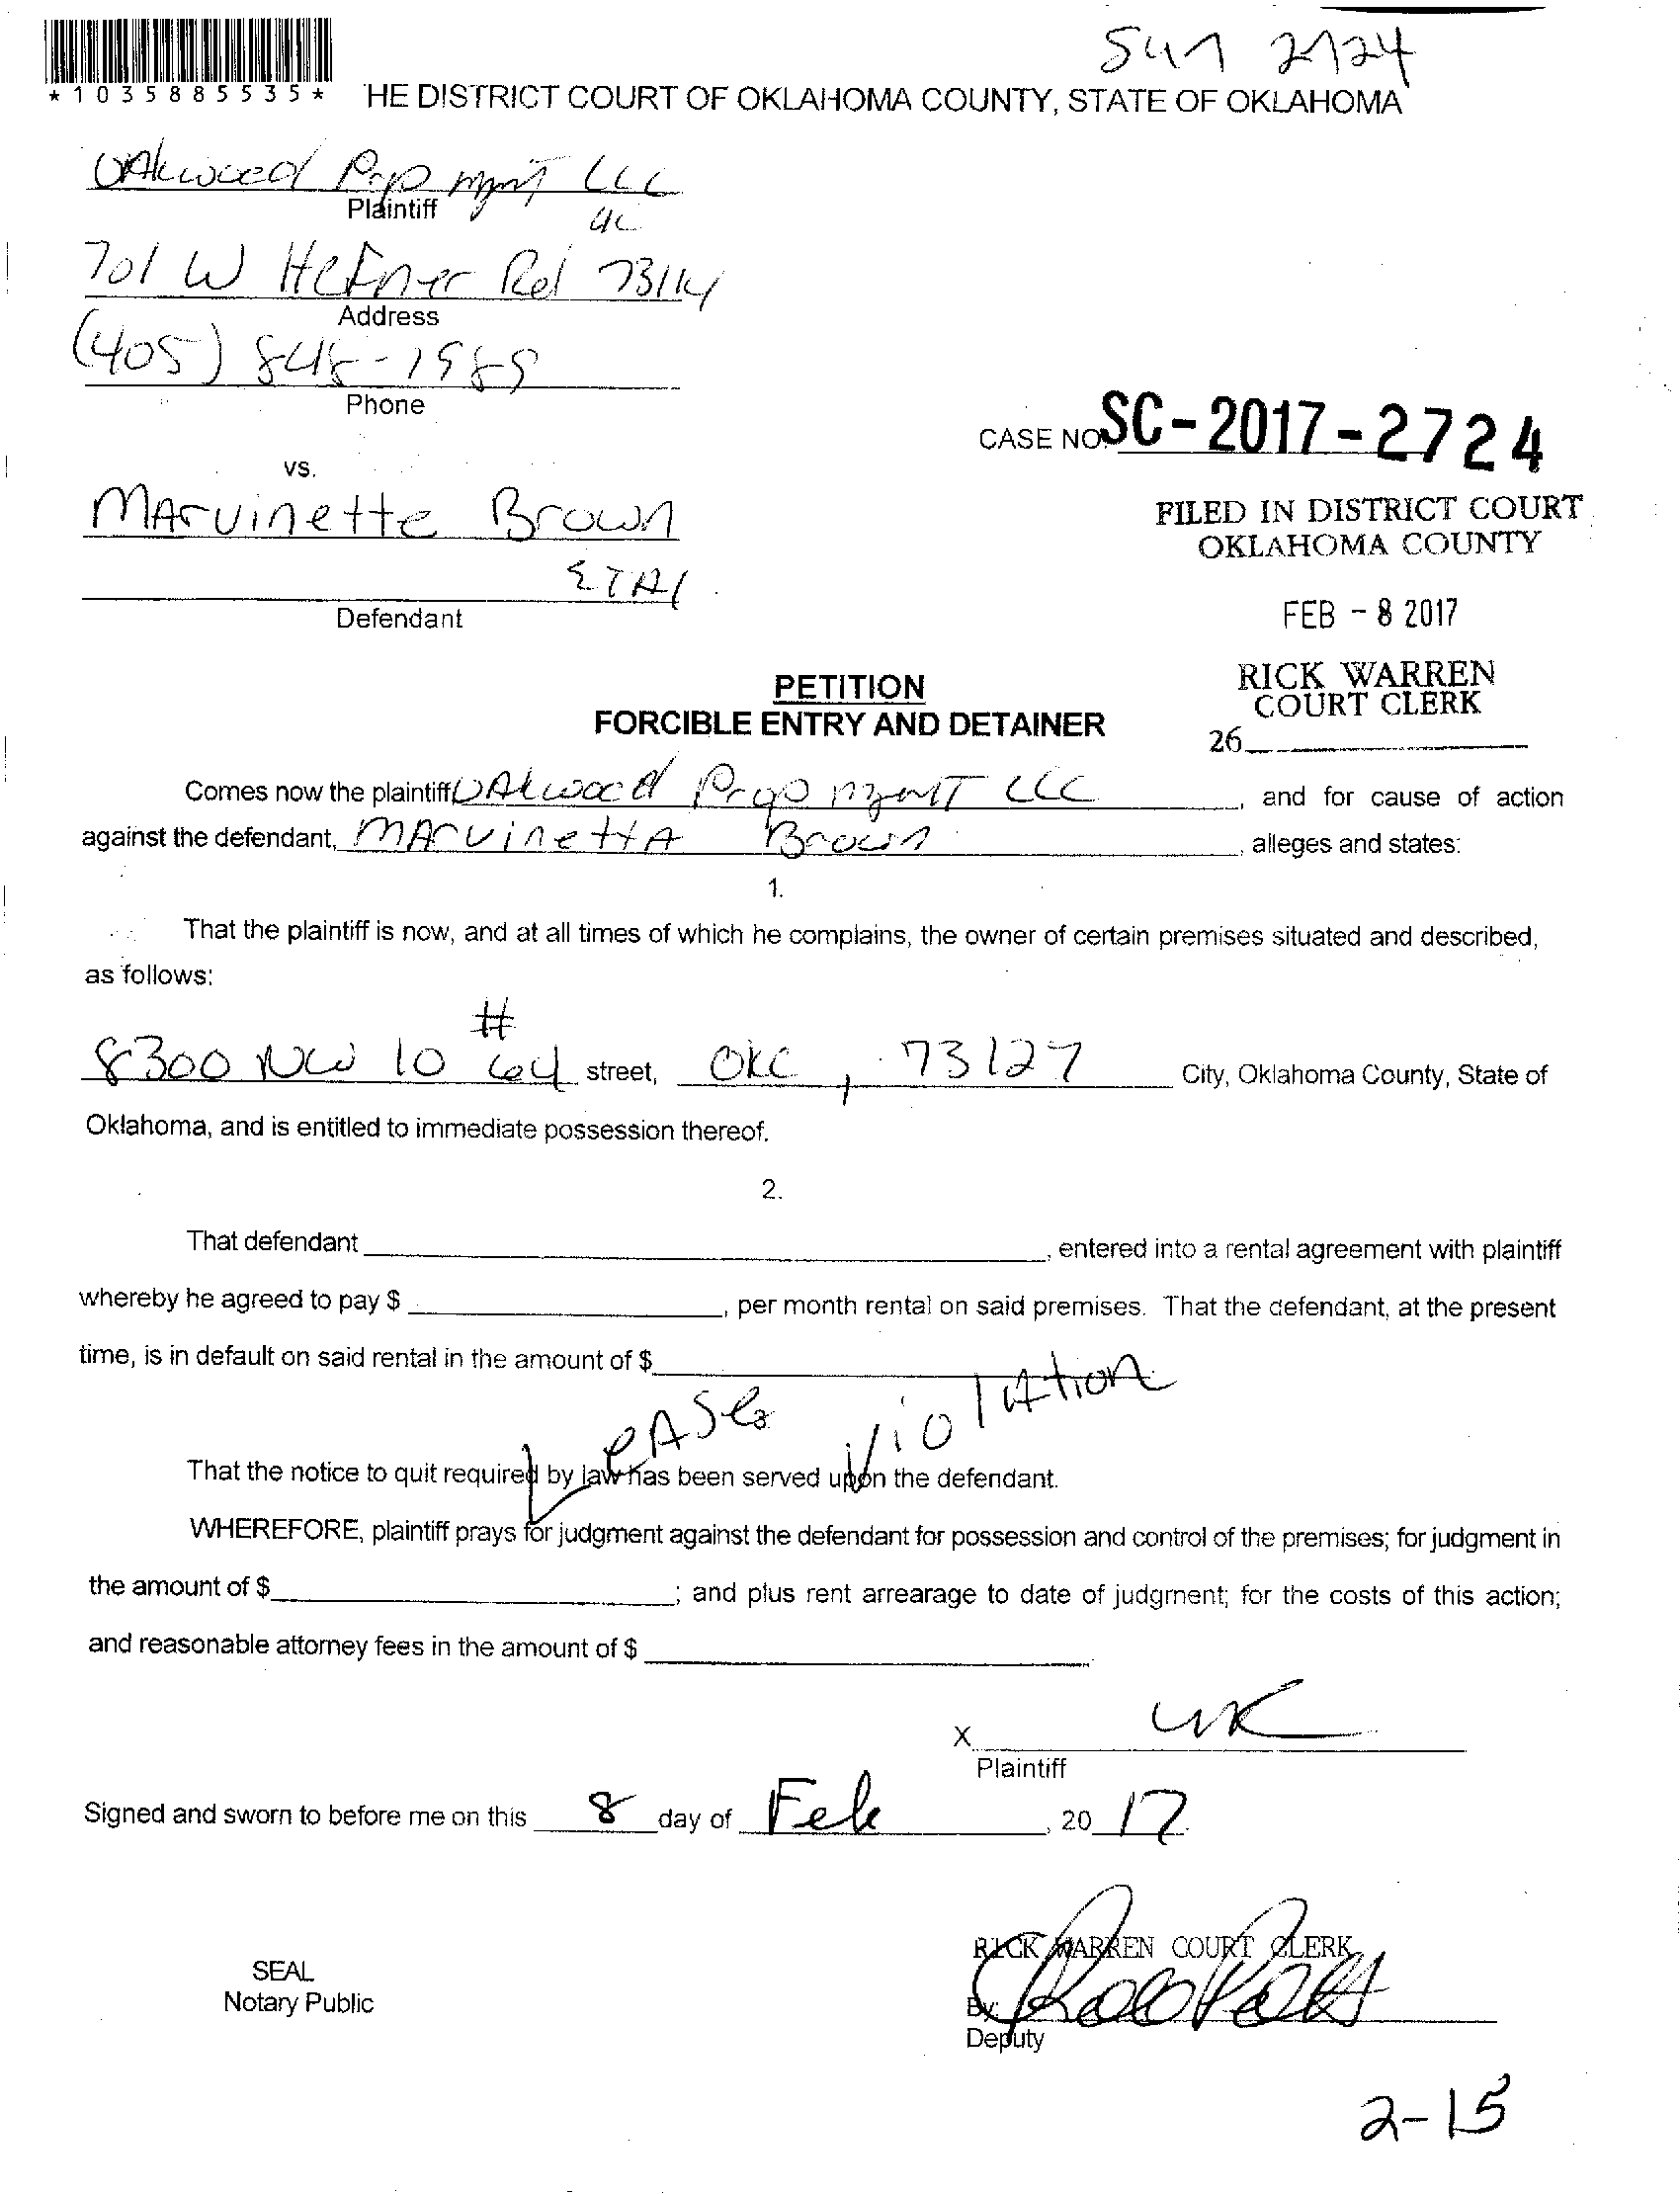 *1035885535*
HE DISTRICT COURT OF OKLAHOMA COUNTY, STATE OF OKLAHOMA
OAkwood Prp mgmT LLC
Plaintiff
701 W HeFner Rd 73114
Address
(405) 848-1989
Phone
CASE NO. SC-2017-2724
vs.
MArvinette Brown
FILED IN DISTRICT COURT
OKLAHOMA COUNTY
ETAl
Defendant
FEB - 8 2017
PETITION
FORCIBLE ENTRY AND DETAINER
RICK WARREN
COURT CLERK
26
Comes now the plaintiff OAkwood Prop mgmT LLC, and for cause of action
against the defendant, MArvinettA Brown, alleges and states:
1.
That the plaintiff is now, and at all times of which he complains, the owner of certain premises situated and described,
as follows:
8300 NW 10 #64 street, OKC, 73127 City, Oklahoma County, State of
Oklahoma, and is entitled to immediate possession thereof.
2.
That defendant, entered into a rental agreement with plaintiff
whereby he agreed to pay $, per month rental on said premises. That the defendant, at the present
time, is in default on said rental in the amount of $
LeASe violAtion
That the notice to quit required by law has been served upon the defendant.
WHEREFORE, plaintiff prays for judgment against the defendant for possession and control of the premises; for judgment in
the amount of $; and plus rent arrearage to date of judgment; for the costs of this action;
and reasonable attorney fees in the amount of $
X
Plaintiff
Signed and sworn to before me on this 8 day of Feb, 20 17
RICK WARREN COURT CLERK
SEAL
Notary Public
By:
Deputy
2-15